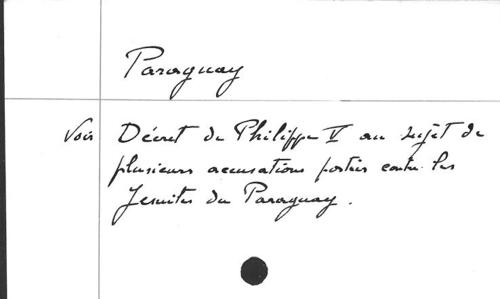 Paraguay
Voir Décret de Philippe V au sujet de
plusieurs accusations portées contre les
Jesuites du Paraguay.